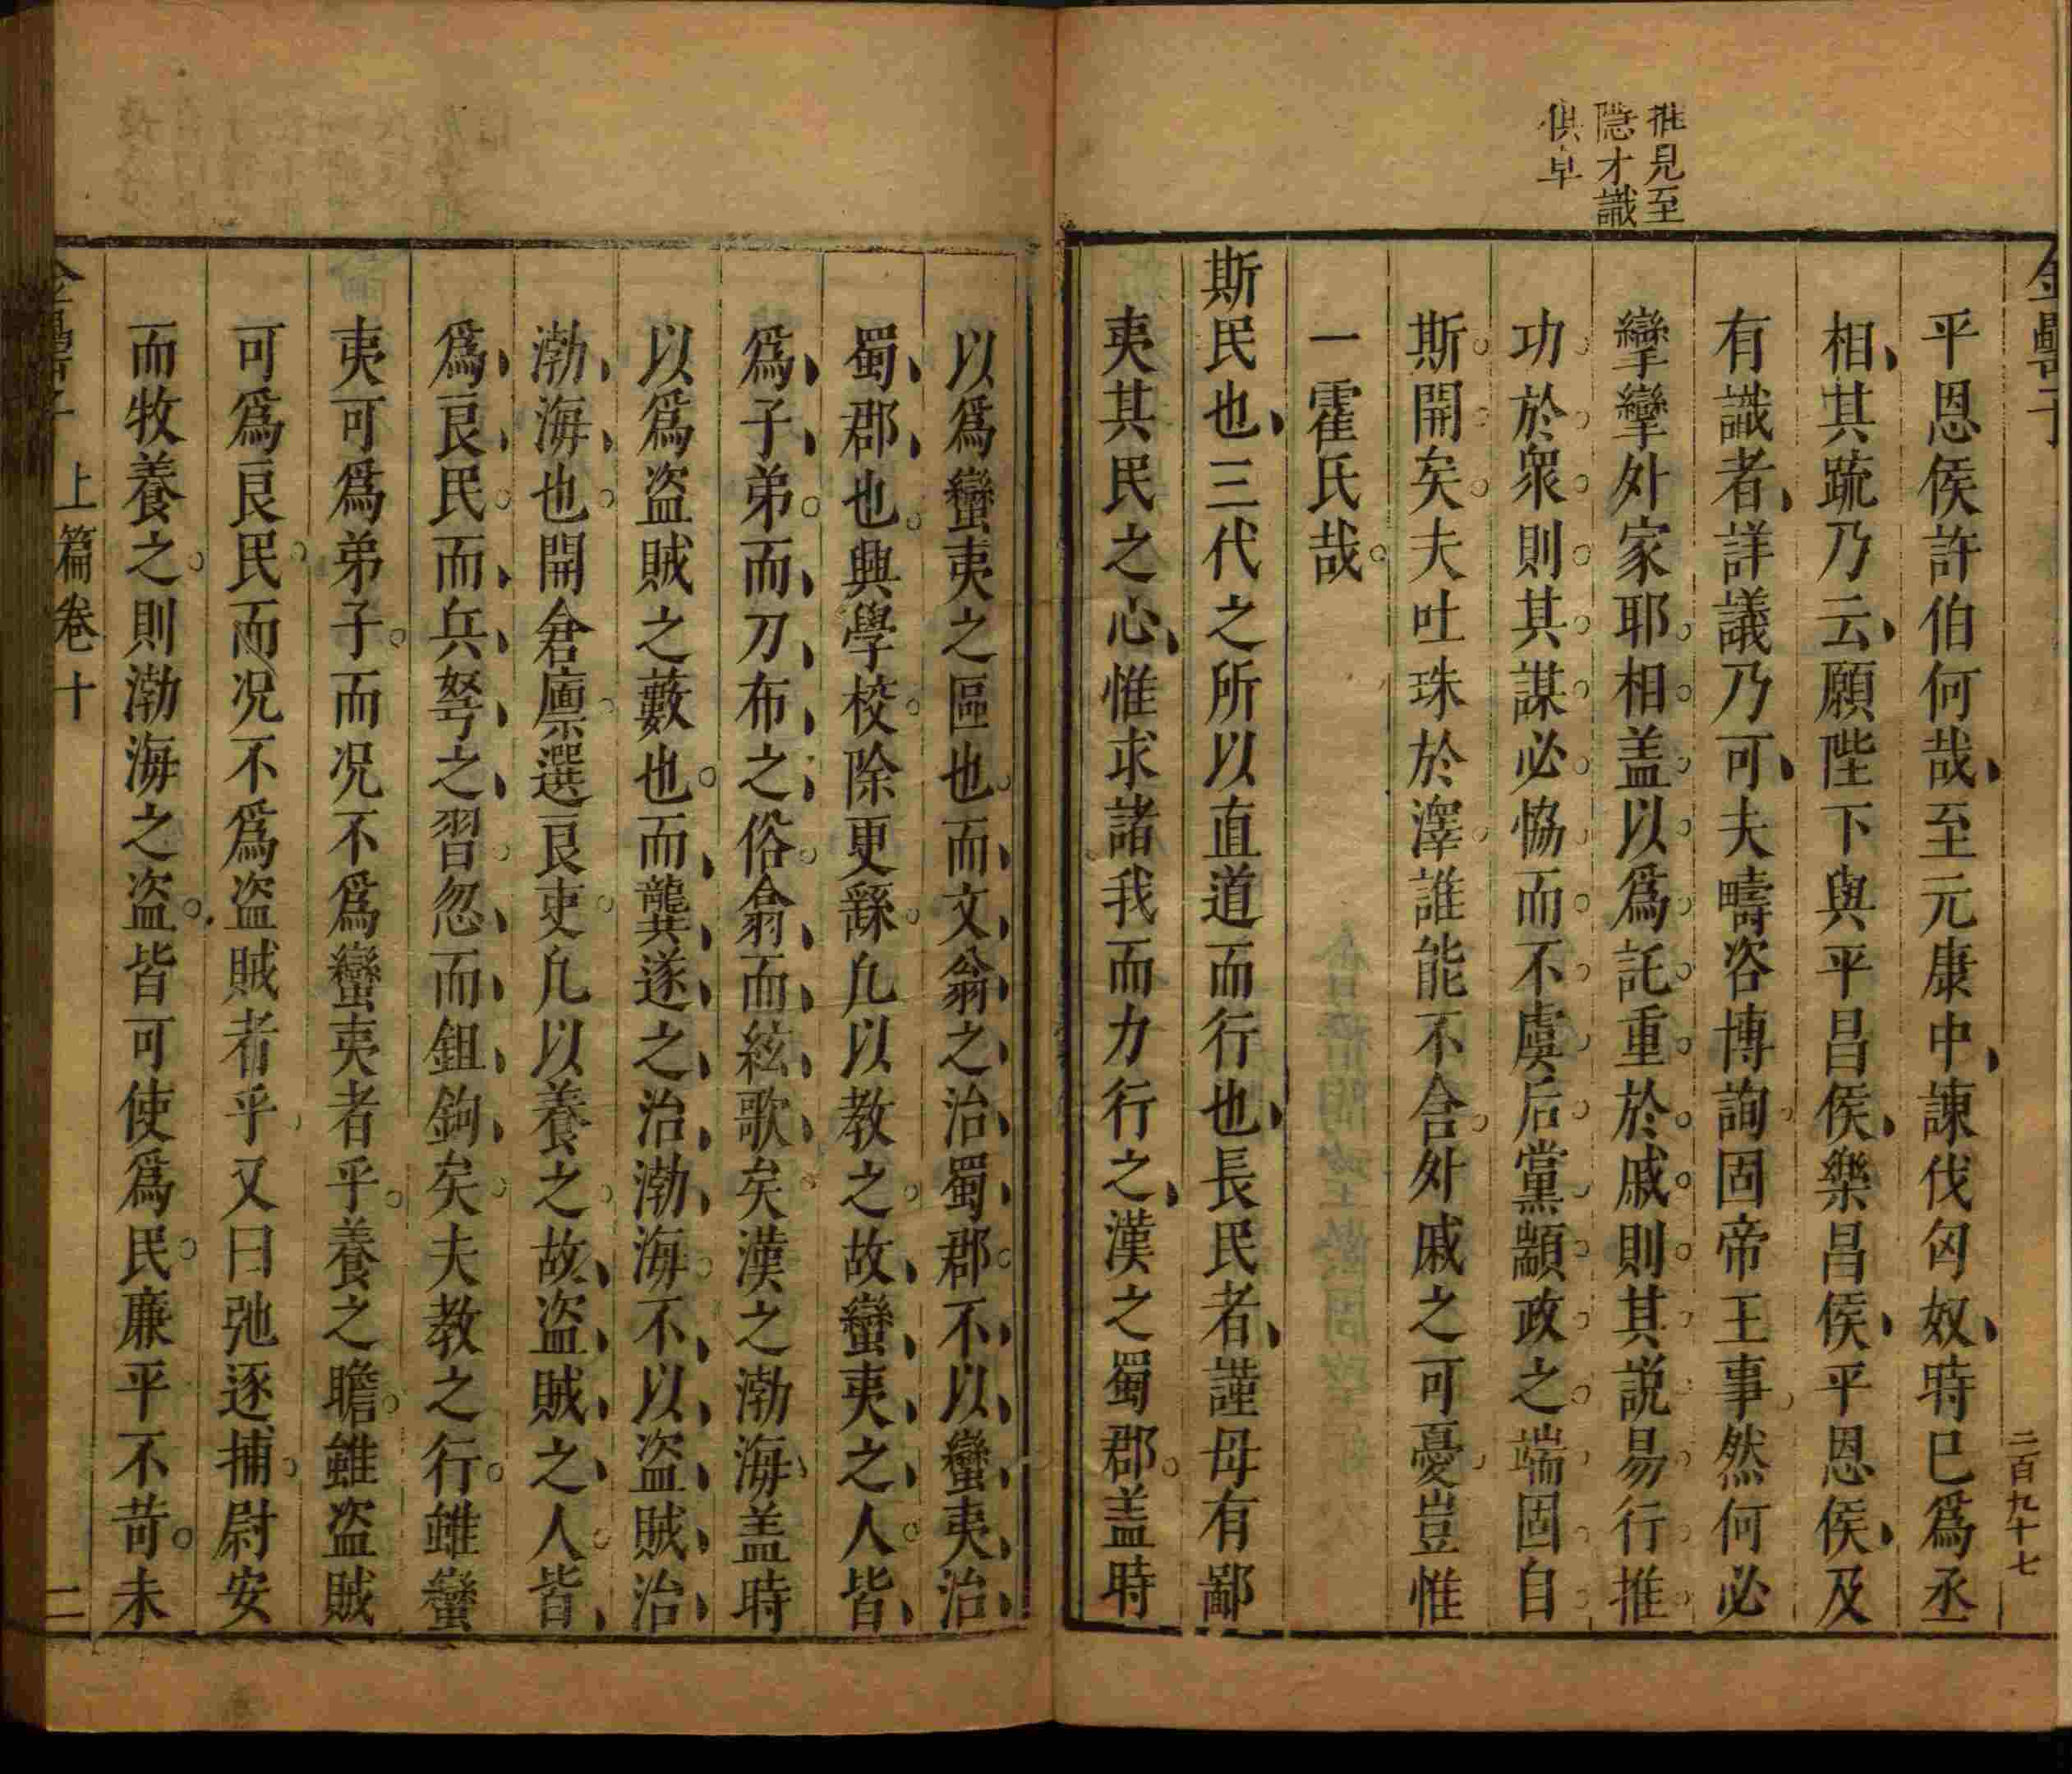 推見至
隠才識
俱卓
金罍子
二百九十七
平恩侯許伯何哉至元康中諫伐匈奴時已爲丞
相其䟽乃云願陛下與平昌侯樂昌侯平恩侯及
有識者詳議乃可夫疇咨博詢固帝王事然何必
攣攣外家耶相盖以爲託重於戚則其説易行推
功於衆則其謀必恊而不虞后黨顓政之端固自
斯開矣夫吐珠於澤誰能不含外戚之可憂豈惟
一霍氏哉
斯民也三代之所以直道而行也長民者謹毋有鄙
夷其民之心惟求諸我而力行之漢之蜀郡盖時
以爲蠻夷之區也而文翁之治蜀郡不以蠻夷治
蜀郡也興學校除更繇凡以教之故蠻夷之人皆
爲子弟而刀布之俗翕而絃歌矣漢之渤海盖時
以爲盗賊之藪也而龔遂之治渤海不以盗賊治
渤海也開倉廪選良吏凡以養之故盗賊之人皆
爲良民而兵弩之習忽而鉏鉤矣夫教之行雖蠻
夷可爲弟子而况不爲蠻夷者乎養之瞻雖盗賊
可爲良民而况不爲盗賊者乎又曰弛逐捕尉安
而牧養之則渤海之盗皆可使爲民廉平不苛未
金罍子
上篇卷十
二